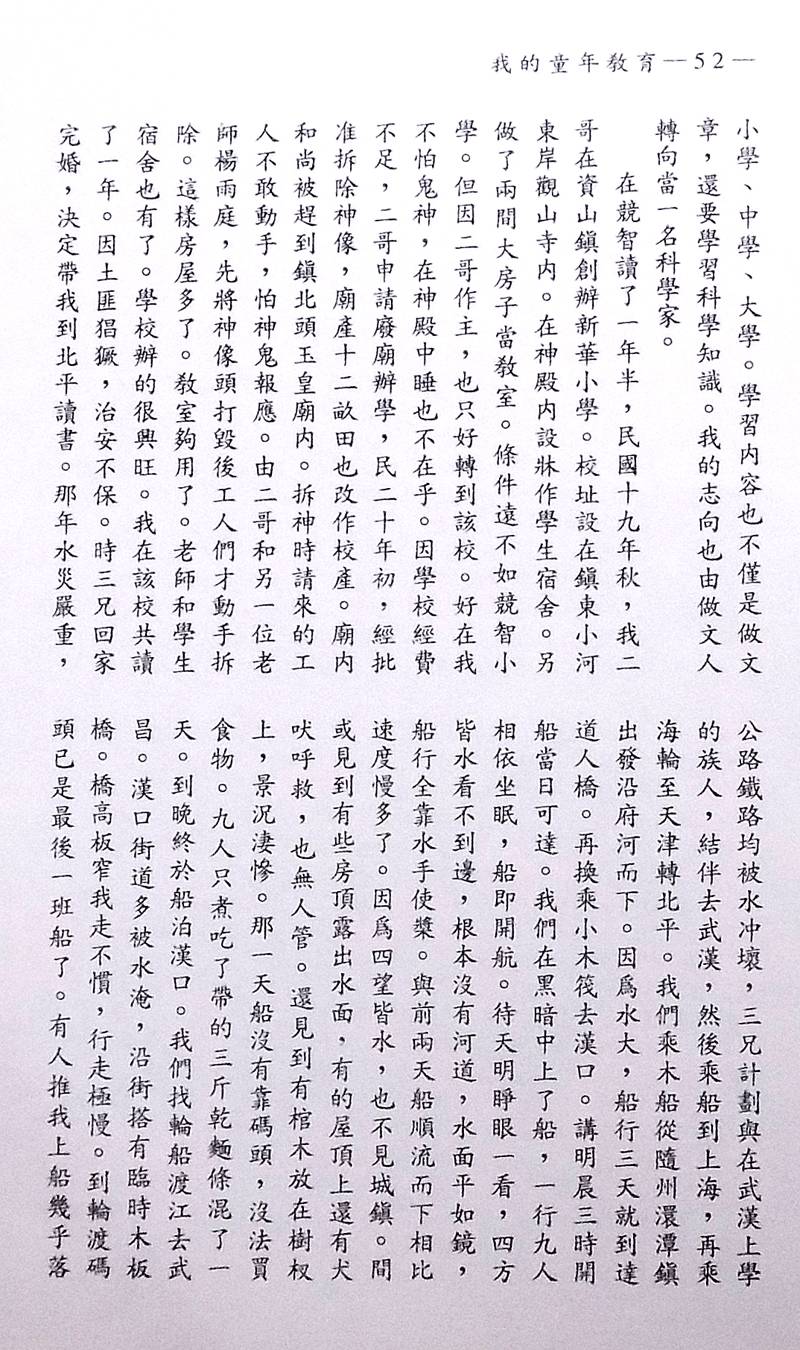 我的童年教育—52—
小學、中學、大學。學習内容也不僅是做文
章，還要學習科學知識。我的志向也由做文人
轉向當一名科學家。
在競智讀了一年半，民國十九年秋，我二
哥在資山鎮創辦新華小學。校址設在鎮東小河
東岸觀山寺内。在神殿内設牀作學生宿舍。另
做了兩間大房子當教室。條件遠不如競智小
學。但因二哥作主，也只好轉到該校。好在我
不怕鬼神，在神殿中睡也不在乎。因學校經費
不足，二哥申請廢廟辦學，民二十年初，經批
准拆除神像，廟產十二畝田也改作校產。廟内
和尚被趕到鎮北頭玉皇廟内。拆神時請來的工
人不敢動手，怕神鬼報應。由二哥和另一位老
師楊雨庭，先將神像頭打毀後工人們才動手拆
除。這樣房屋多了。教室夠用了。老師和學生
宿舍也有了。學校辦的很興旺。我在該校共讀
了一年。因土匪猖獗，治安不保。時三兄回家
完婚，決定帶我到北平讀書。那年水災嚴重，
公路鐵路均被水冲壞，三兄計劃與在武漢上學
的族人，結伴去武漢，然後乘船到上海，再乘
海輪至天津轉北平。我們乘木船從隨州澴潭鎮
出發沿府河而下。因爲水大，船行三天就到達
道人橋。再換乘小木筏去漢口。講明晨三時開
船當日可達。我們在黑暗中上了船，一行九人
相依坐眠，船即開航。待天明睜眼一看，四方
皆水看不到邊，根本沒有河道，水面平如鏡，
船行全靠水手使槳。與前兩天船順流而下相比
速度慢多了。因爲四望皆水，也不見城鎮。間
或見到有些房頂露出水面，有的屋頂上還有犬
吠呼救，也無人管。還見到有棺木放在樹杈
上，景況淒慘。那一天船沒有靠碼頭，沒法買
食物。九人只煮吃了帶的三斤乾麵條混了一
天。到晚終於船泊漢口。我們找輪船渡江去武
昌。漢口街道多被水淹，沿街搭有臨時木板
橋。橋高板窄我走不慣，行走極慢。到輪渡碼
頭已是最後一班船了。有人推我上船幾乎落